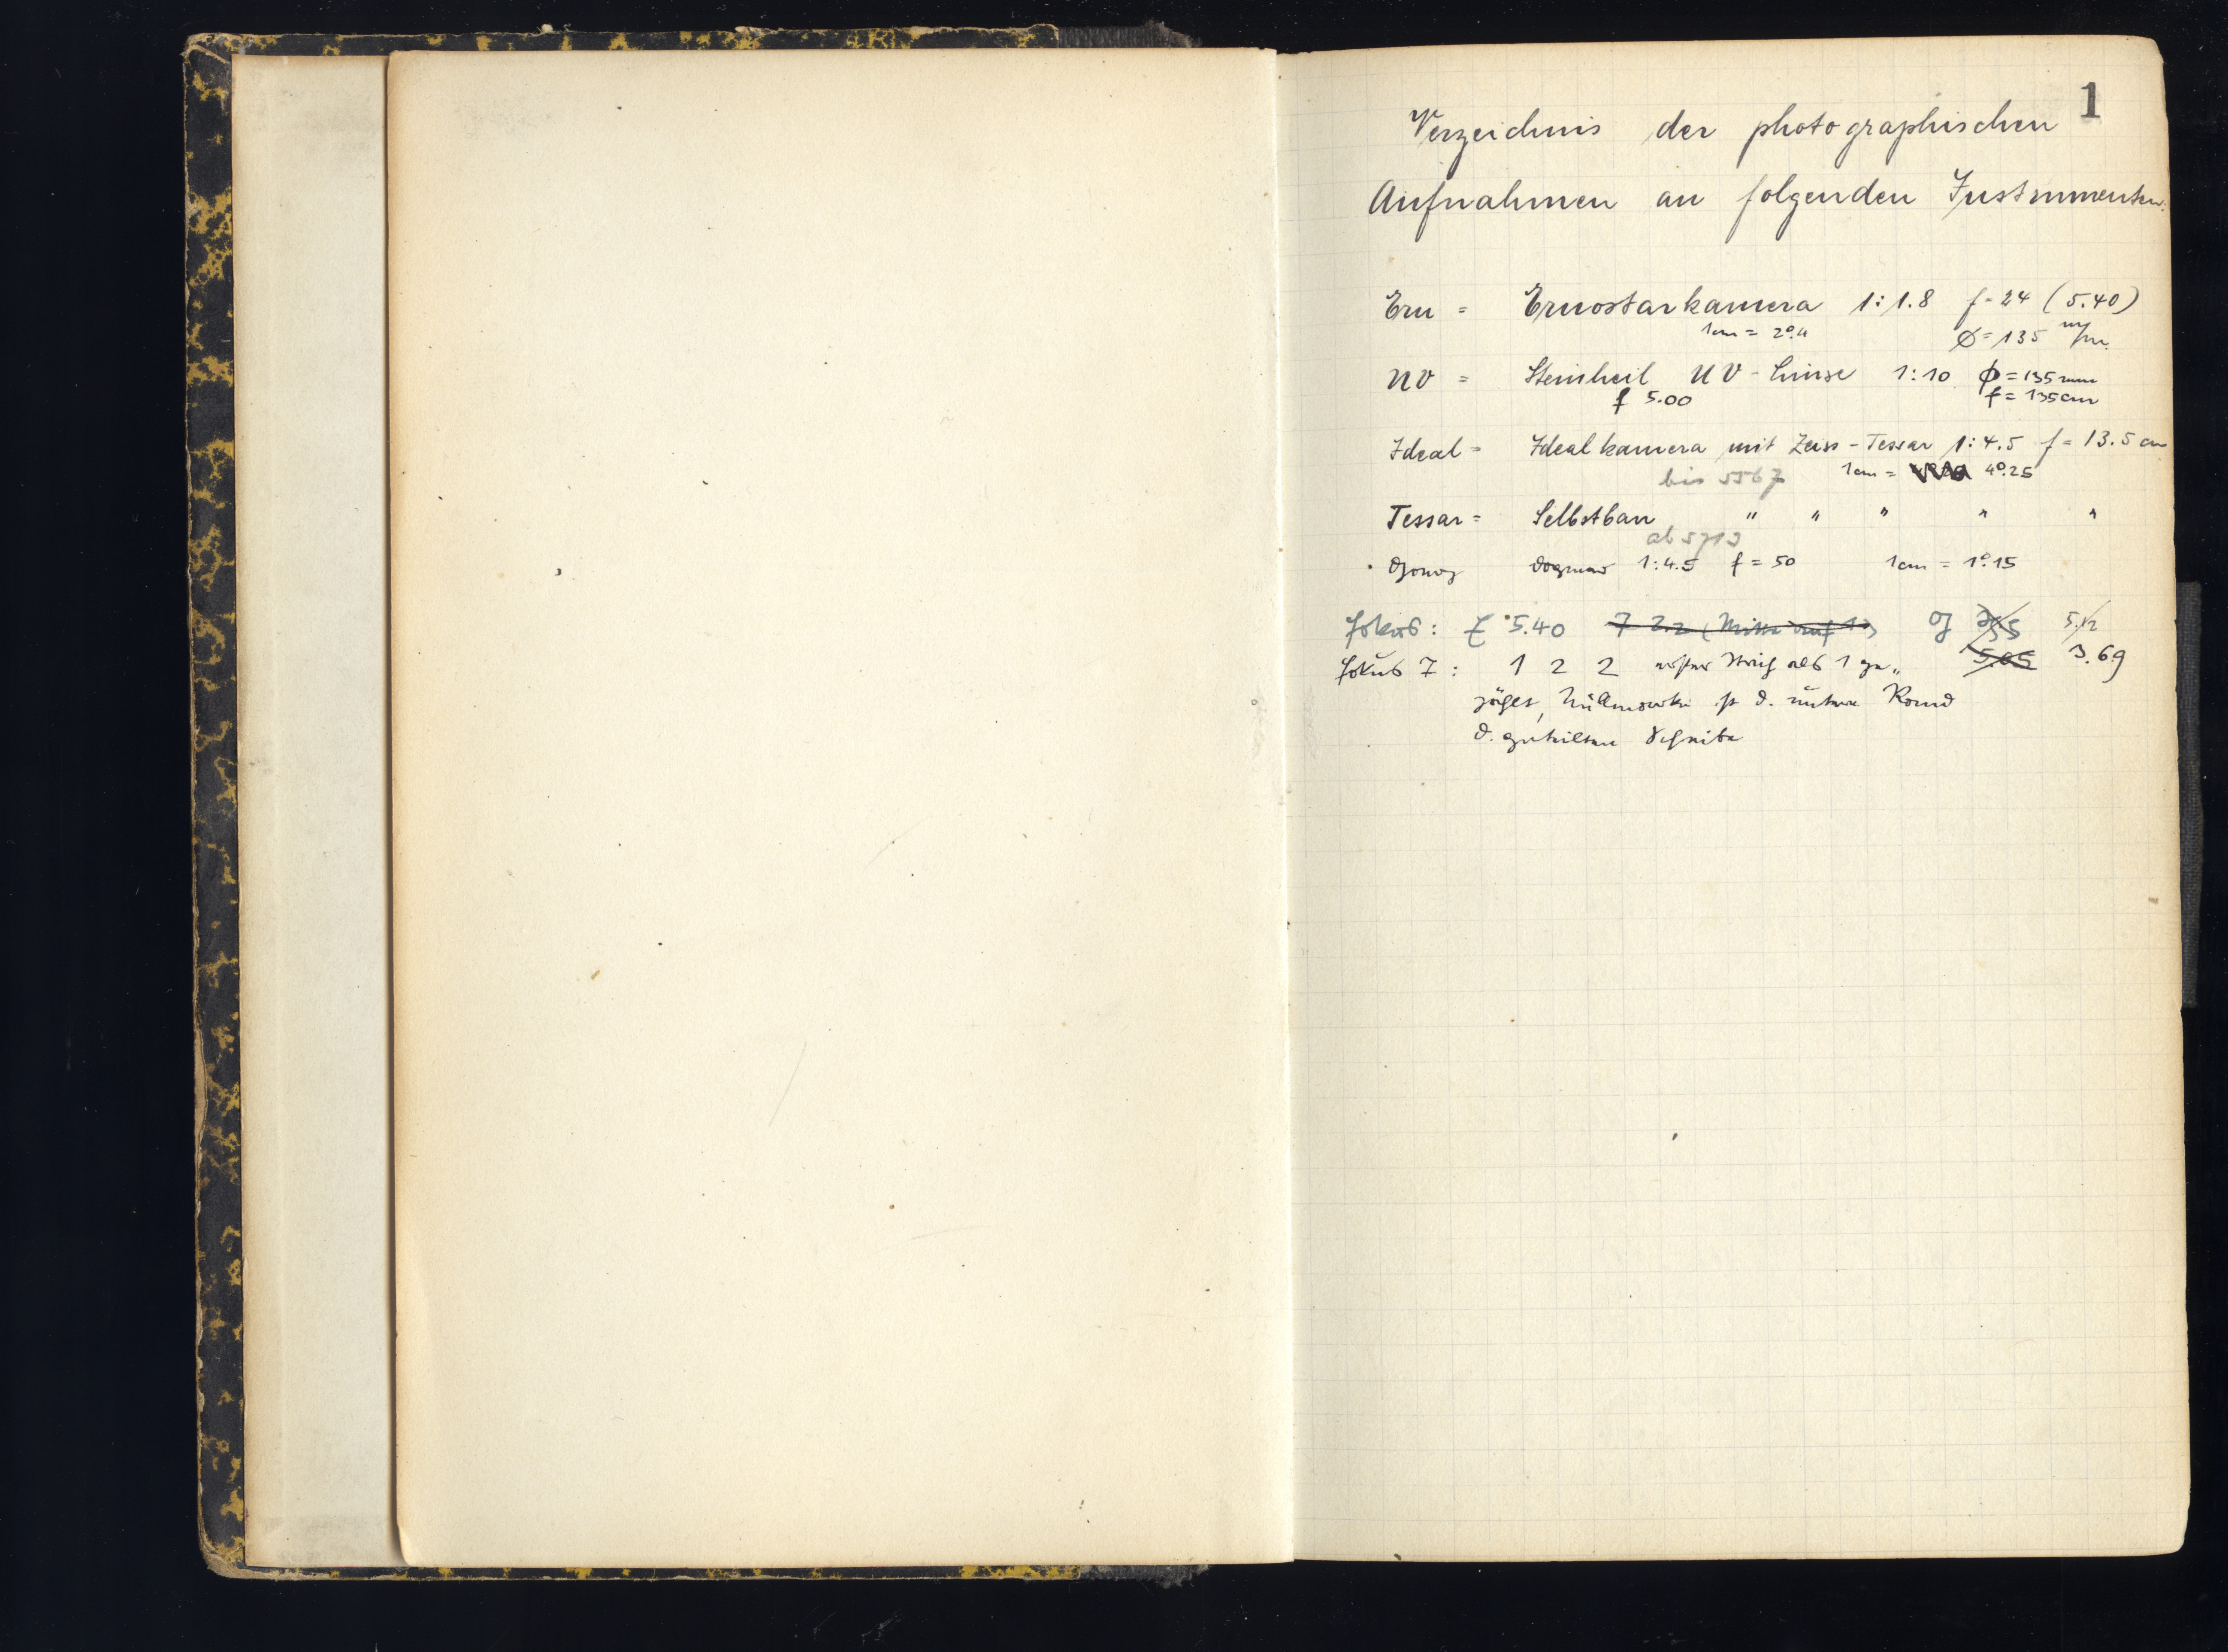 1
Verzeichnis der photographischen
Aufnahmen an folgenden Instrumenten:
Ern = Ernostarkamera 1:1.8 f=24 (5.40)
1cm = 2°.4 Ø=135 m/m.
UV = Steinheil UV-Linse 1:10 ϕ=135mm
f 5.00 f=135cm
Ideal = Idealkamera mit Zeiss-Tessar 1:4.5 f=13.5 cm
bis 5567 1cm = 4°.25
Tessar = Selbstbau " " " " "
ab 5713
Dogmar 1:4.5 f=50 1cm = 1°.15
Fokus: E 5.40 5.12
Fokus T: 1 2 2 als 1 5.65 3.69
d. Rand
d.